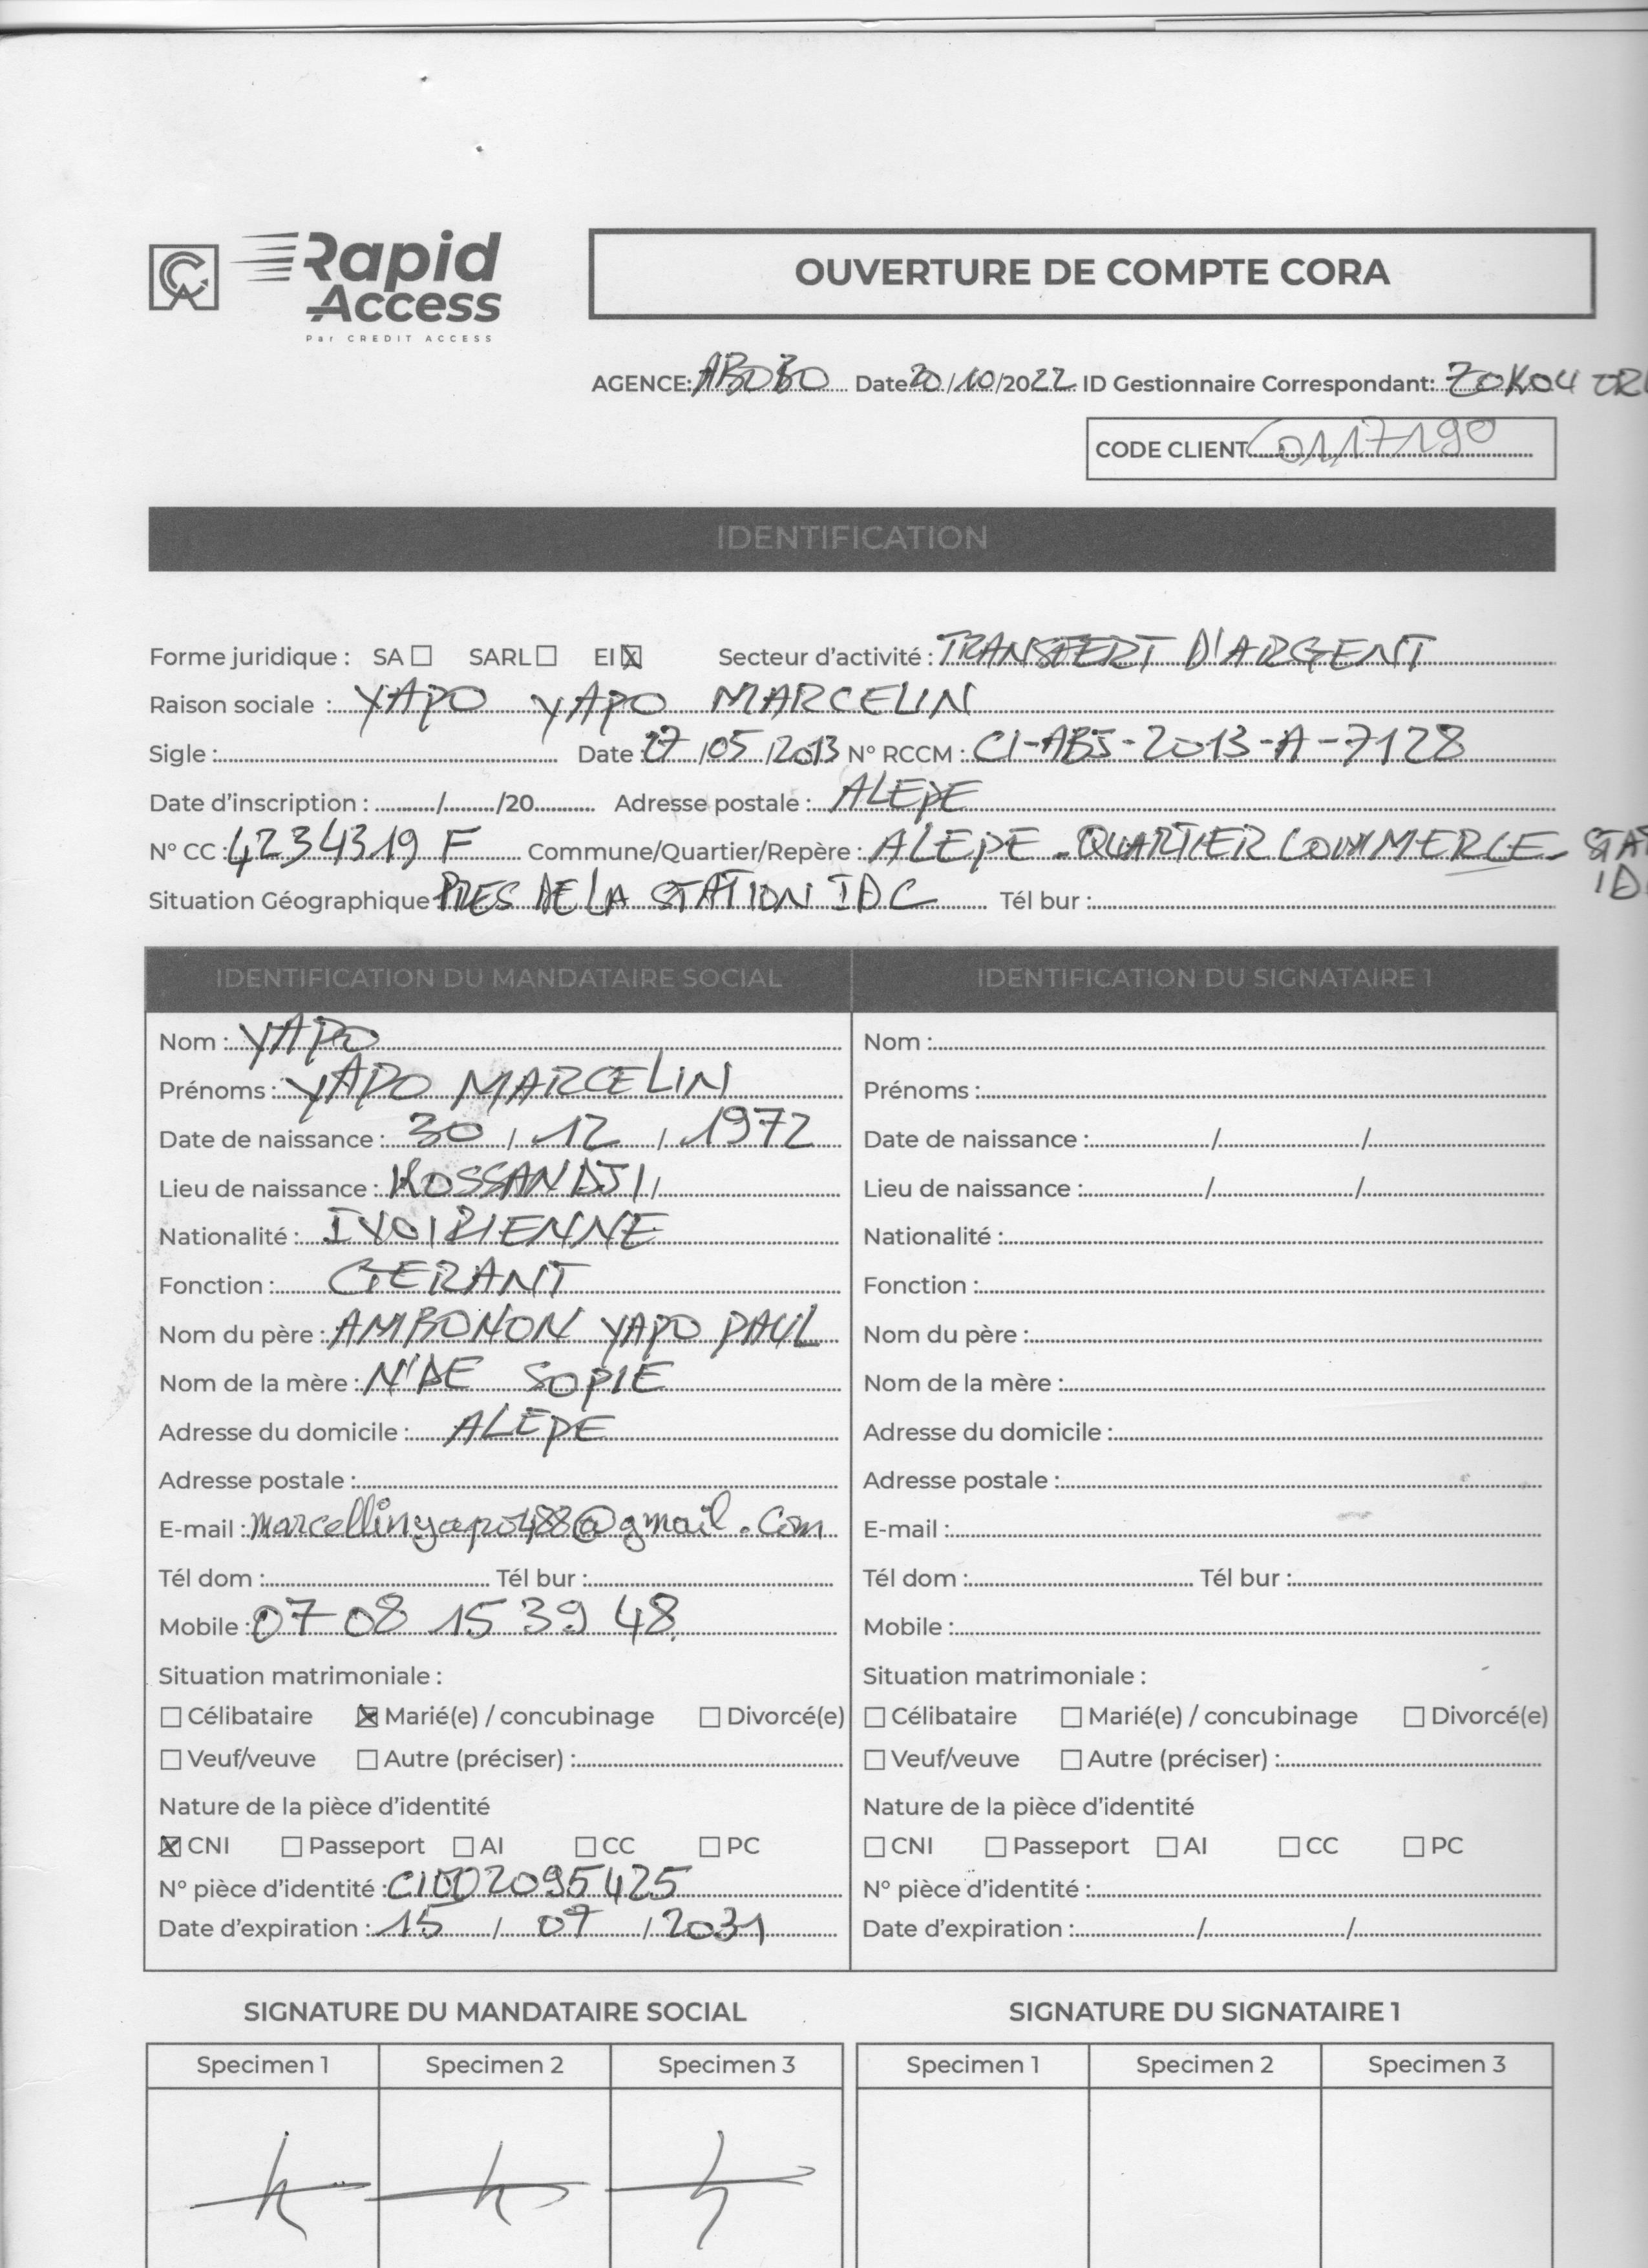 Rapid
Access
Par CREDIT ACCESS
OUVERTURE DE COMPTE CORA
AGENCE: ABOBO Date 20/10/2022 ID Gestionnaire Correspondant: ZOKOU
CODE CLIENT 0117190
IDENTIFICATION
Forme juridique : SA ☐ SARL ☐ EI ☒ Secteur d'activité : TRANSFERT D'ARGENT
Raison sociale : YAPO YAPO MARCELIN
Sigle : Date : 27/05/2013 N° RCCM : CI-ABJ-2013-A-7128
Date d'inscription : / /20 Adresse postale : ALEPE
N° CC : 4234319 F Commune/Quartier/Repère : ALEPE - QUARTIER COMMERCE -
Situation Géographique PRES DE LA STATION IDC Tél bur :
IDENTIFICATION DU MANDATAIRE SOCIAL
Nom : YAPO
Prénoms : YAPO MARCELIN
Date de naissance : 30 / 12 / 1972
Lieu de naissance : KOSSANDJI /
Nationalité : IVOIRIENNE
Fonction : GERANT
Nom du père : AMBONON YAPO PAUL
Nom de la mère : N'DE SOPIE
Adresse du domicile : ALEPE
Adresse postale :
E-mail : marcellinyapo488@gmail.com
Tél dom : Tél bur :
Mobile : 07 08 15 39 48
Situation matrimoniale :
☐ Célibataire ☒ Marié(e) / concubinage ☐ Divorcé(e)
☐ Veuf/veuve ☐ Autre (préciser) :
Nature de la pièce d'identité
☒ CNI ☐ Passeport ☐ AI ☐ CC ☐ PC
N° pièce d'identité : CI002095425
Date d'expiration : 15 / 07 / 2031
IDENTIFICATION DU SIGNATAIRE 1
Nom :
Prénoms :
Date de naissance : / /
Lieu de naissance : / /
Nationalité :
Fonction :
Nom du père :
Nom de la mère :
Adresse du domicile :
Adresse postale :
E-mail :
Tél dom : Tél bur :
Mobile :
Situation matrimoniale :
☐ Célibataire ☐ Marié(e) / concubinage ☐ Divorcé(e)
☐ Veuf/veuve ☐ Autre (préciser) :
Nature de la pièce d'identité
☐ CNI ☐ Passeport ☐ AI ☐ CC ☐ PC
N° pièce d'identité :
Date d'expiration : / /
SIGNATURE DU MANDATAIRE SOCIAL
Specimen 1 Specimen 2 Specimen 3
SIGNATURE DU SIGNATAIRE 1
Specimen 1 Specimen 2 Specimen 3